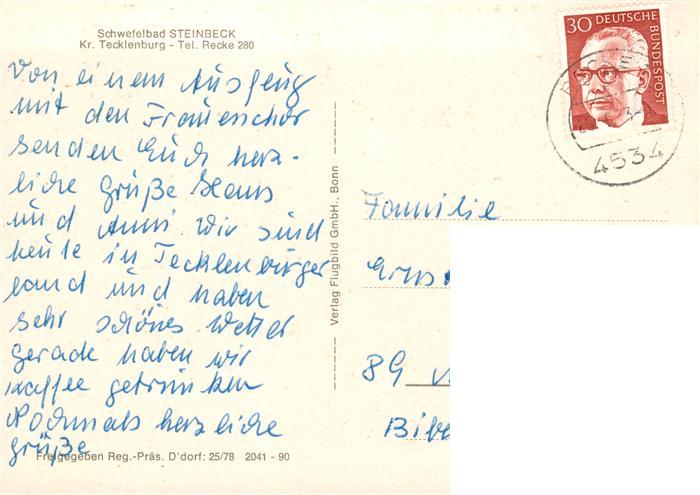 Schwefelbad STEINBECK
Kr. Tecklenburg - Tel. Recke 280
Von einem Ausfeug
mit den Frauenchor
senden Euch herz-
liche Grüße Hans
und Anni. Wir sind
heute in Tecklenburger
land und haben
sehr schönes Wetter
gerade haben wir
Kaffee getrunken
Nochmals herzliche
grüße
Freigegeben Reg.-Präs. D'dorf: 25/78 2041 - 90
Verlag Flugbild GmbH., Bonn
30 DEUTSCHE
BUNDESPOST
4534
Familie
89